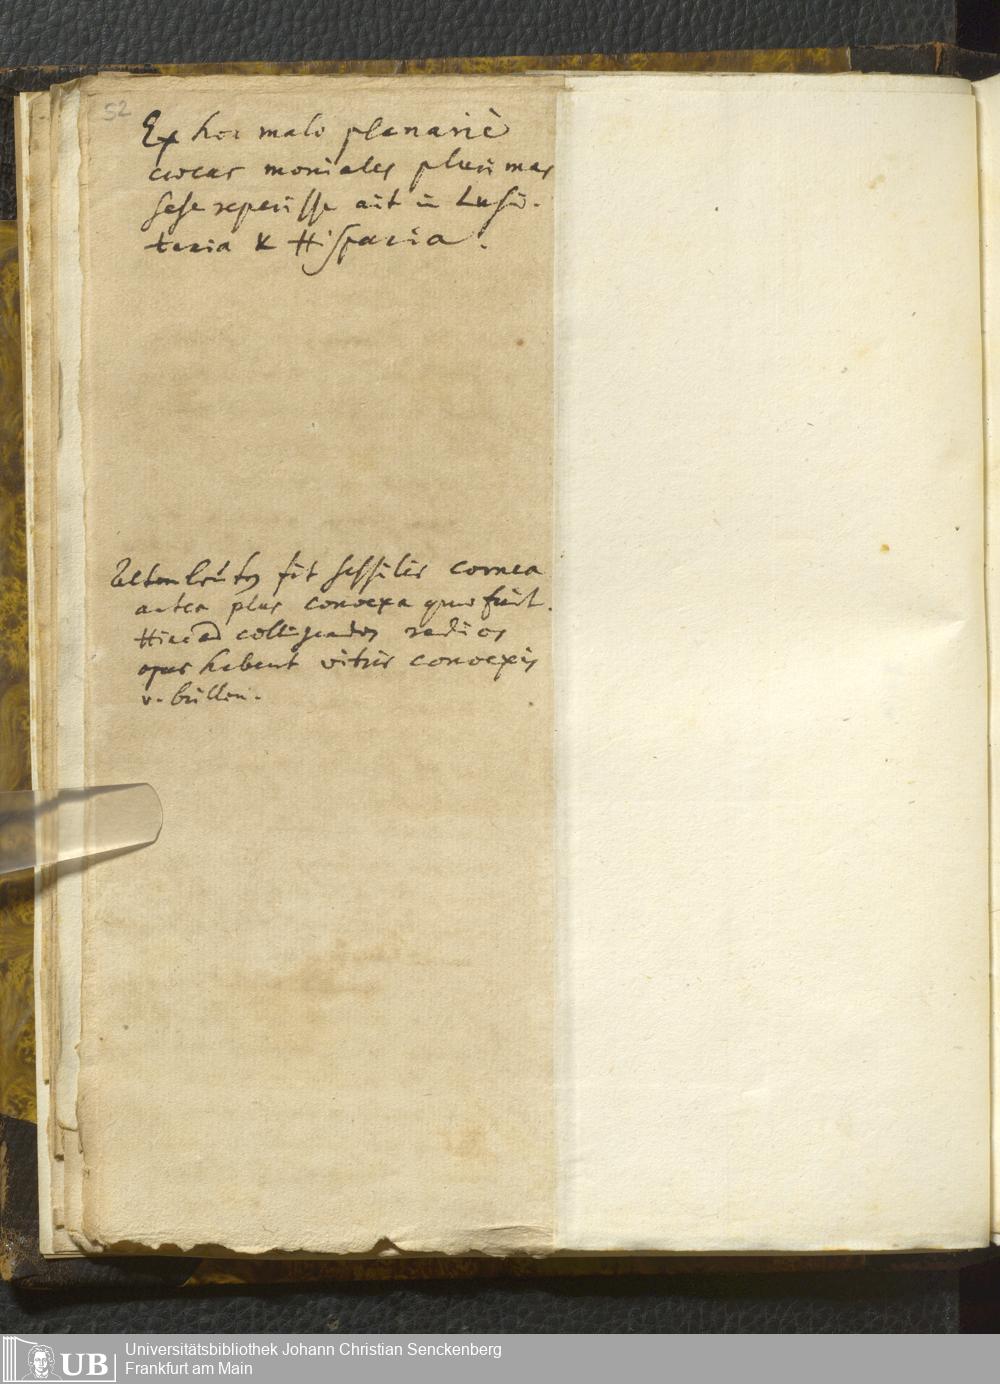 52
Ex hoc malo plenariè
cæcas moniales plurimas
sese reperisse ait in Lusi-
tania & Hispania.
Alten leuten fit sessilis cornea
antea plus convexa quam fuit.
Hinc ad colligendos radios
opus habent vitris convexis
v. brillen.
UB
Universitätsbibliothek Johann Christian Senckenberg
Frankfurt am Main